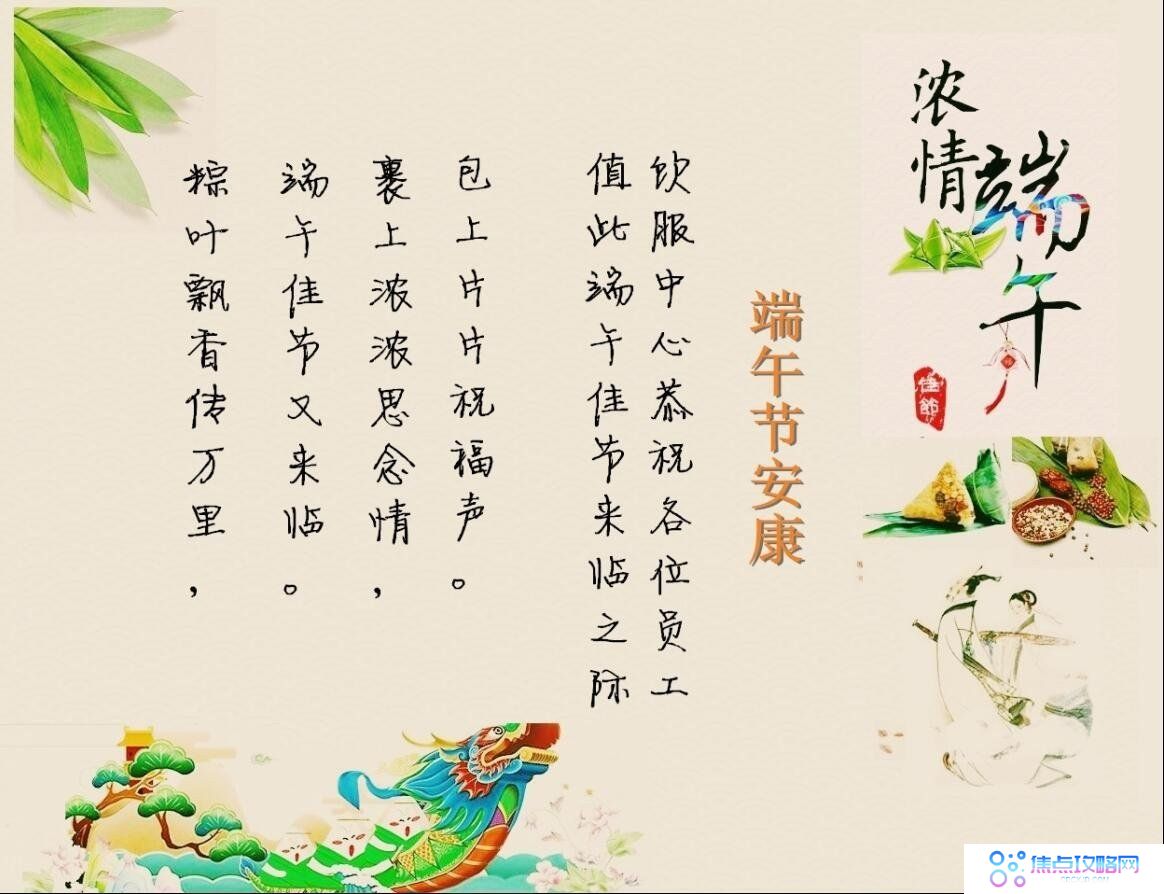 粽叶飘香传万里，
端午佳节又来临。
裹上浓浓思念情，
包上片片祝福声。
值此端午佳节来临之际
饮服中心恭祝各位员工
端午节安康
浓情
端午
佳節
焦点攻略网